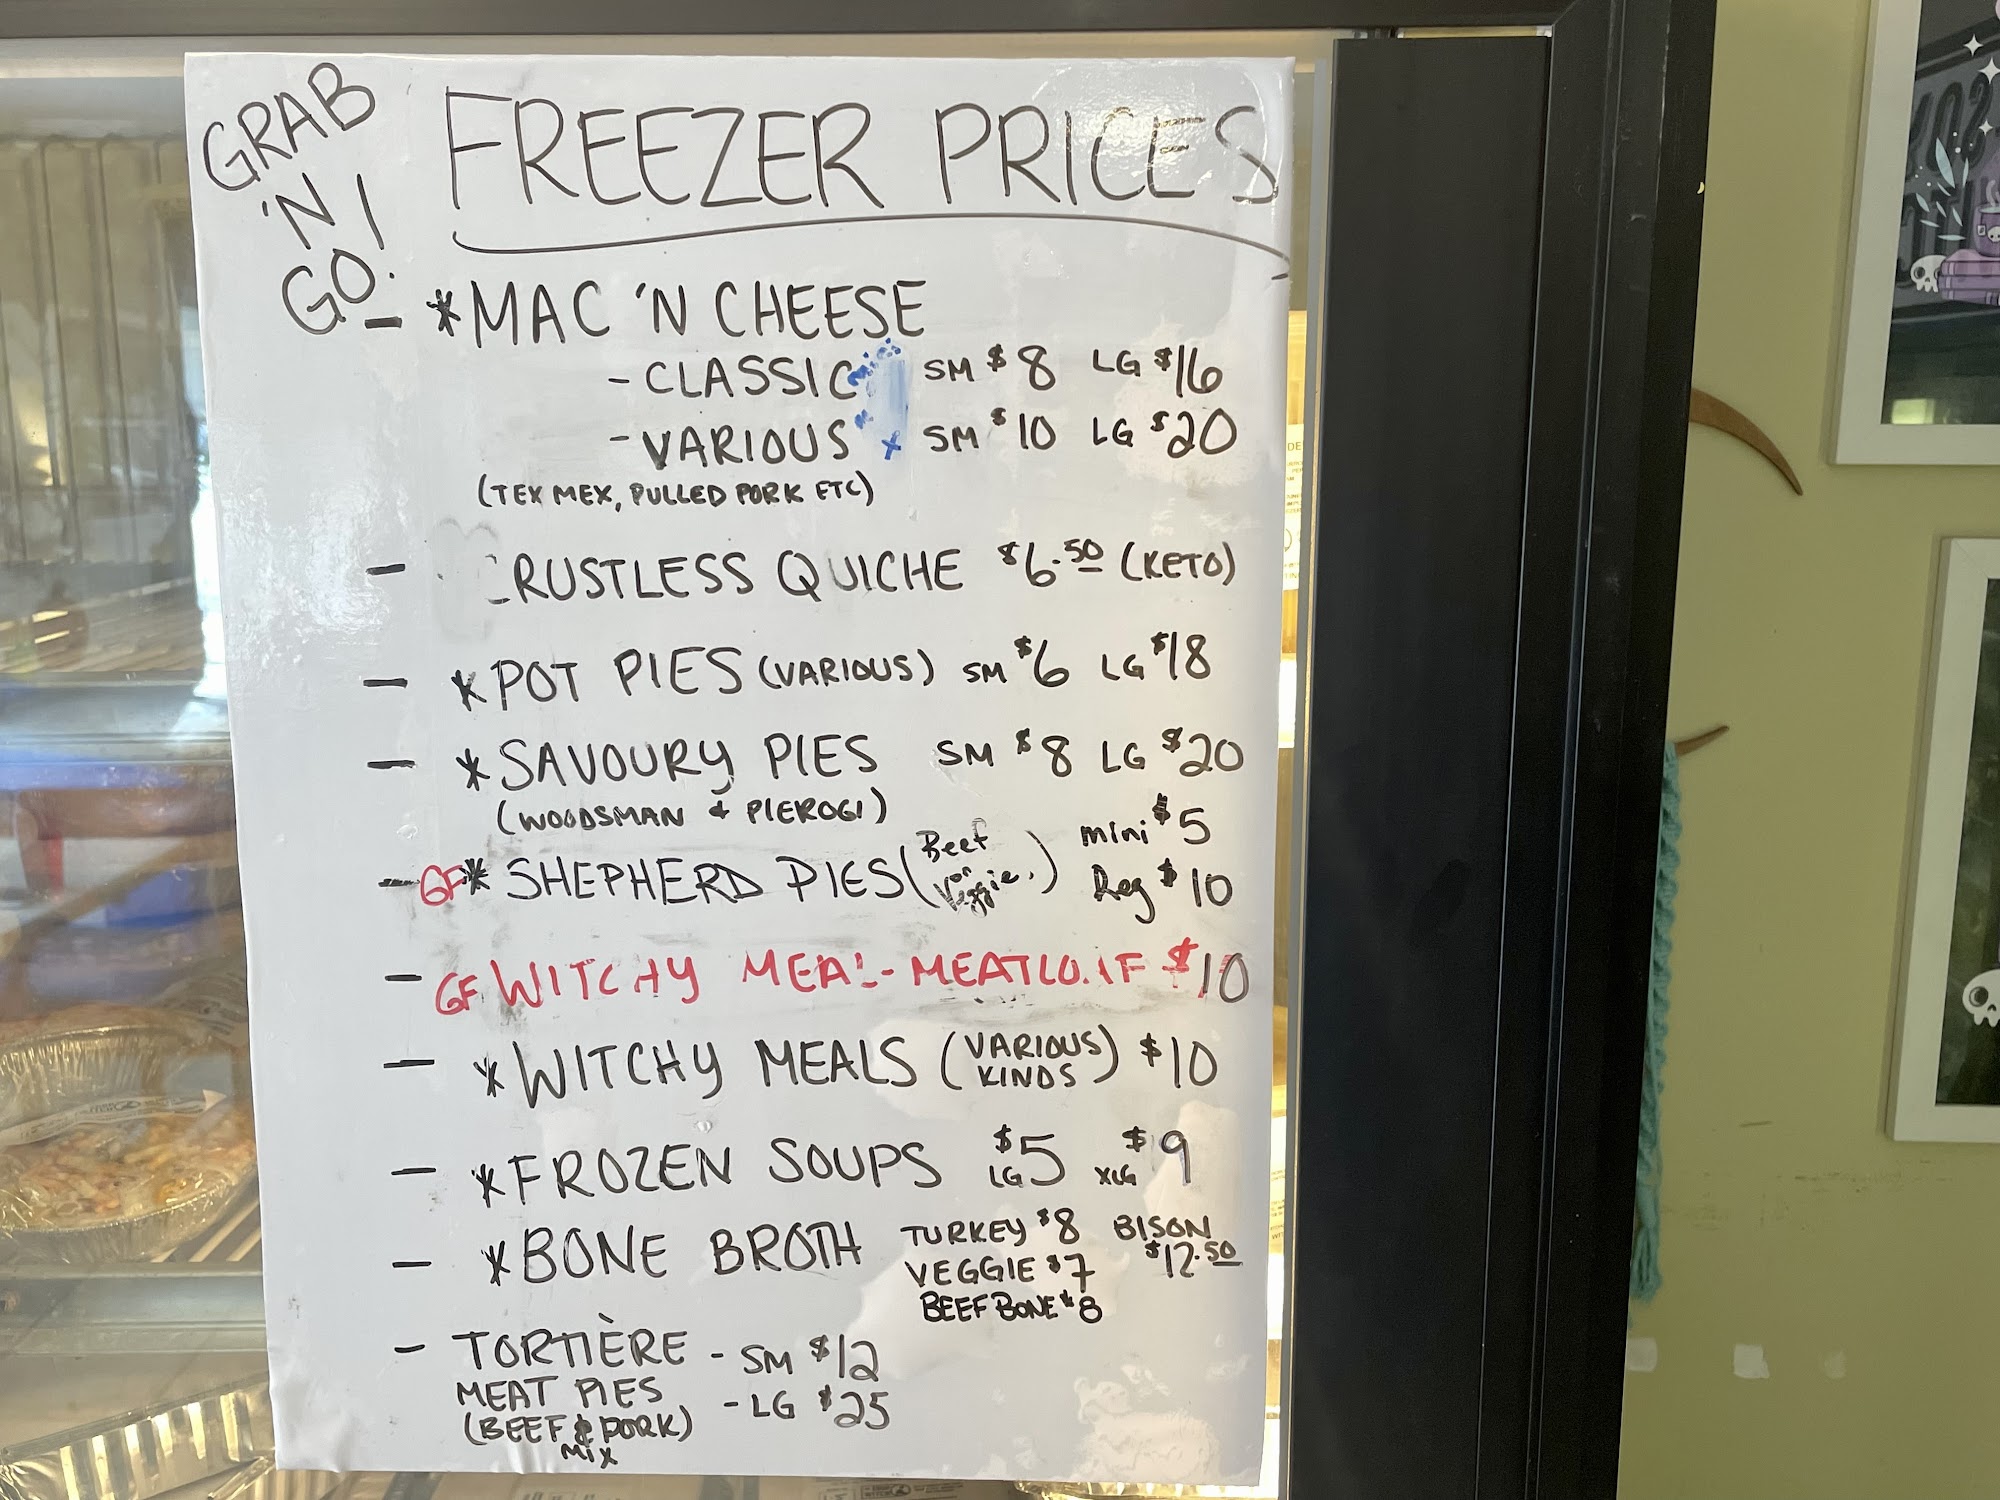 GRAB
'N
GO!
FREEZER PRICES
- *MAC 'N CHEESE
- CLASSIC SM $8 LG $16
- VARIOUS x SM $10 LG $20
(TEX MEX, PULLED PORK ETC)
- CRUSTLESS QUICHE $6.50 (KETO)
- *POT PIES (VARIOUS) SM $6 LG $18
- *SAVOURY PIES SM $8 LG $20
(WOODSMAN & PIEROGI)
- GF* SHEPHERD PIES (Beef or Veggie.) mini $5
Reg $10
- GF WITCHY MEAL - MEATLOAF $10
- *WITCHY MEALS (VARIOUS KINDS) $10
- *FROZEN SOUPS LG $5 XLG $9
- *BONE BROTH TURKEY $8 BISON $12.50
VEGGIE $7
BEEF BONE $8
- TORTIÈRE - SM $12
MEAT PIES - LG $25
(BEEF & PORK)
MIX